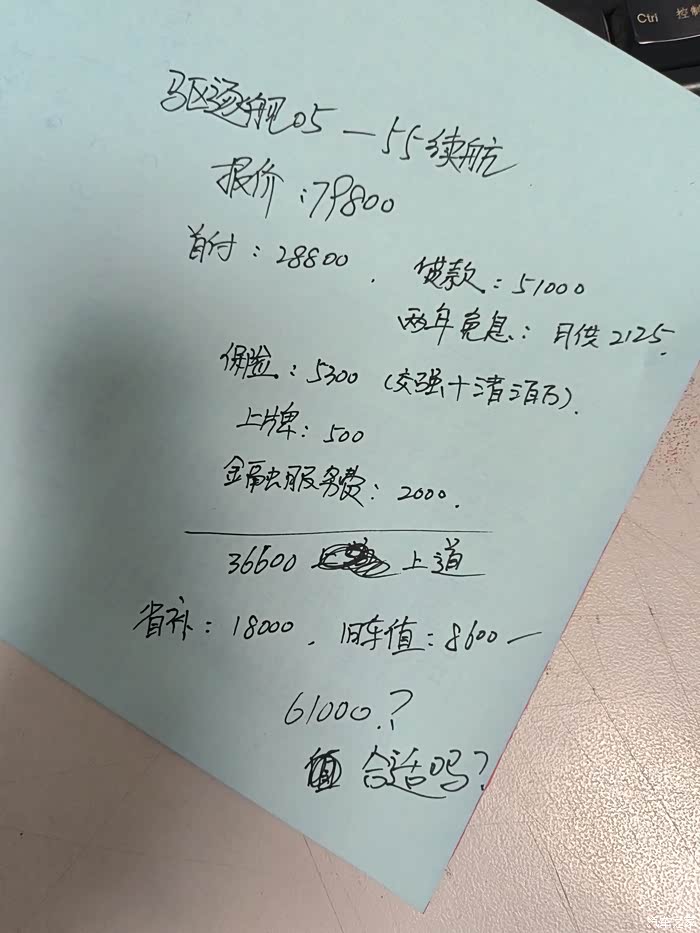 Ctrl 控制
驱逐舰05—55续航
报价:79800
首付:28800. 贷款:51000
两年免息:月供2125.
保险:5300(交强+三者三百万).
上牌:500
金融服务费:2000.
36600 上道
省补:18000. 旧车值:8600—
61000.?
合适吗?